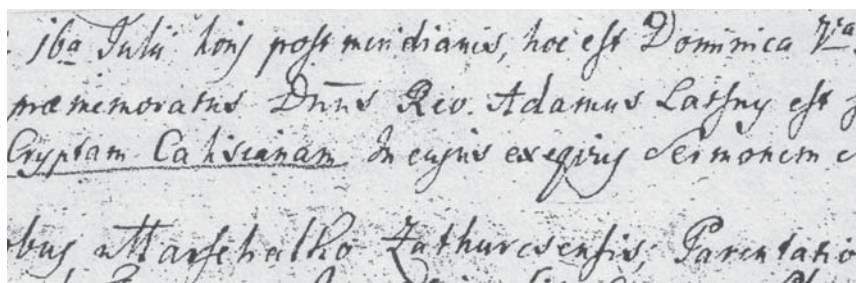 16a Julii horis post meridianis, hoc est Dominica 7ma
præmemoratus Dnns Rev. Adamus Latsny est
Cryptam Calisianam In cujus exequiis Sermonem
obus Marschalko Zathurcsensis; Parentatio